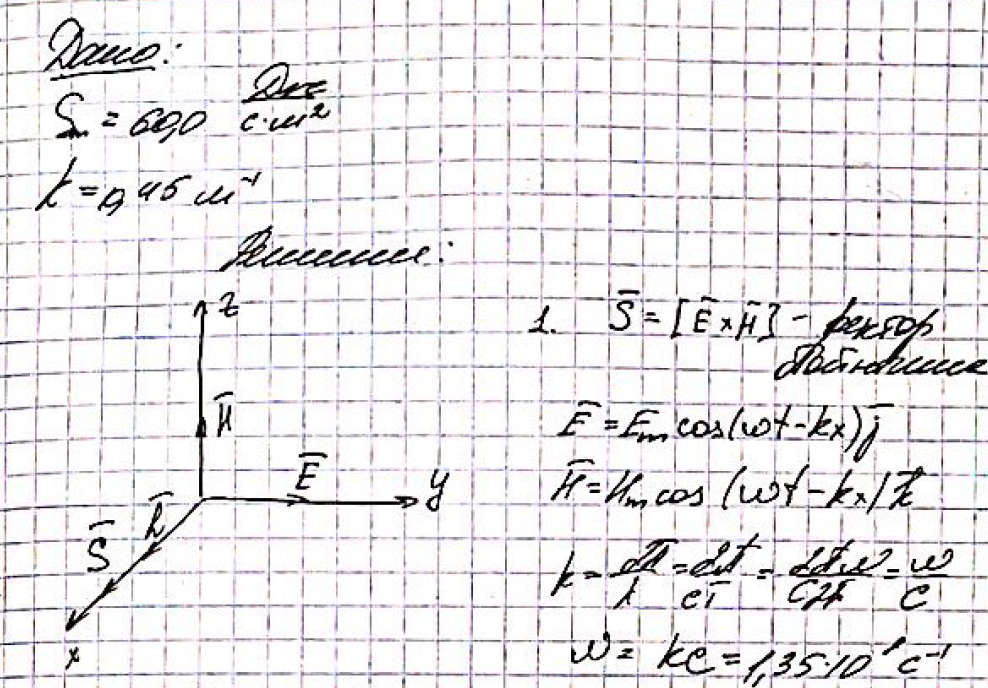 Дано:
Sₘ = 60,0 Дж/с·м²
k = 0,45 м⁻¹
Решение:
z
H̄
Ē
y
k̄
S̄
x
1. S̄ = [Ē × H̄] – вектор
Пойнтинга
Ē = Eₘ cos(ωt – kx) j̄
H̄ = Hₘ cos (ωt – kx) k̄
k = 2π/λ = 2π/cT = 2πω/c2π = ω/c
ω = kc = 1,35·10 c⁻¹